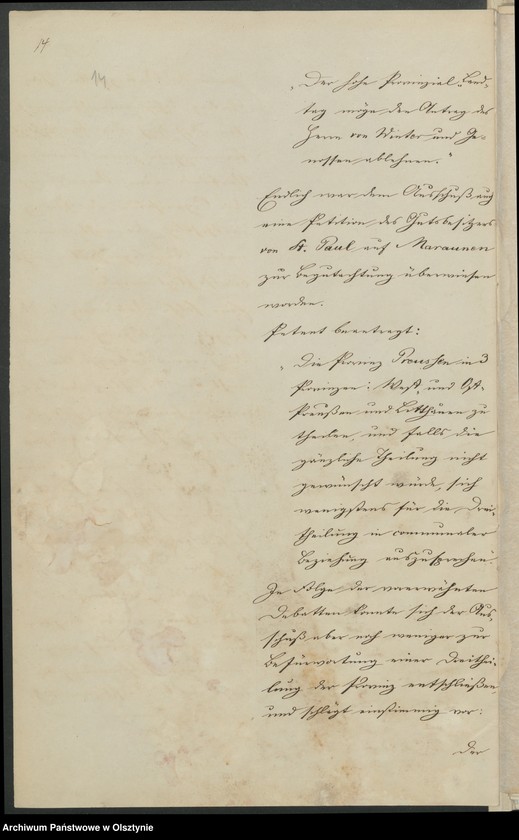 14
14
„Der hohe Provinzial-Land-
tag möge den Antrag des
Herrn von Winter und Ge-
nossen ablehnen."
Endlich war dem Ausschuß auch
eine Petition des Gutsbesitzers
von St. Paul auf Maraunen
zur Begutachtung überwiesen
worden.
Petent beantragt:
„Die Provinz Preussen in 3
Provinzen: West- und Ost-
Preußen und Litthauen zu
theilen, und falls die
gänzliche Theilung nicht
gewünscht würde, sich
wenigstens für die Drei-
theilung in communaler
Beziehung auszusprechen."
In Folge der vorerwähnten
Debatten konnte sich der Aus-
schuß aber noch weniger zur
Befürwortung einer Dreithei-
lung der Provinz entschließen
und schlägt einstimmig vor:
der
Archiwum Państwowe w Olsztynie